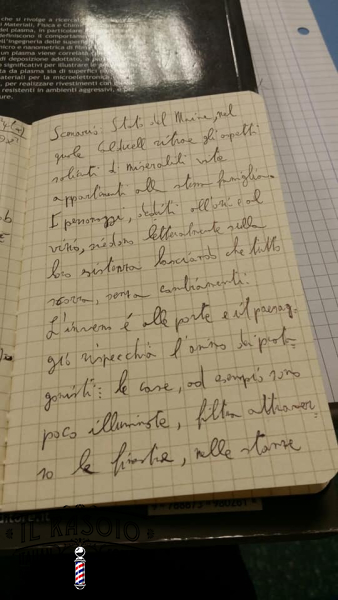 che si rivolge a ricerca
Materiali, Fisica e Chim
del plasma, in particolare
definiscono il comportamento
l'ingegneria delle superfici
micro e nanometrica di
un plasma viene correlata
di deposizione adottato, a
significativi per illustrare le
ta da plasma sia di superfici
ateriali per la microelettronica
, per realizzare rivestimenti con
resistenti in ambienti aggressivi, a
ure.
Scenario Stati del Maine, nel
quale Caldwell ritrae gli aspetti
salienti di miserabili vite
appartenenti alla stessa famiglia.
I personaggi, dediti all'ozio e al
vino, siedono letteralmente sulla
loro esistenza lasciando che tutto
scorra, senza cambiamenti.
L'inverno é alle porte e il paesag-
gio rispecchia l'animo dei prota-
gonisti: le case, ad esempio sono
poco illuminate, filtra attraver-
so le finestre, nelle stanze
IL RASOIO